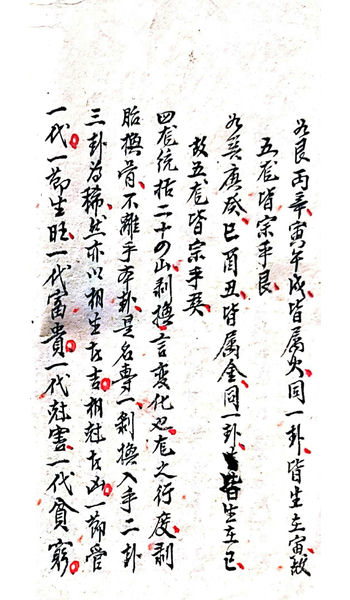 如艮丙辛寅午戌皆属火同一卦皆生在寅故
五龙皆宗乎艮
如巽庚癸巳酉丑皆属金同一卦皆生在巳
故五龙皆宗乎巽
四龙统括二十四山剥換言变化也龙之行度剥
胎換骨不離乎本卦是名專一剥換入手二卦
三卦为稀然亦以相生为吉相尅为凶一節管
一代一節生旺一代富貴一代尅害一代貧窮